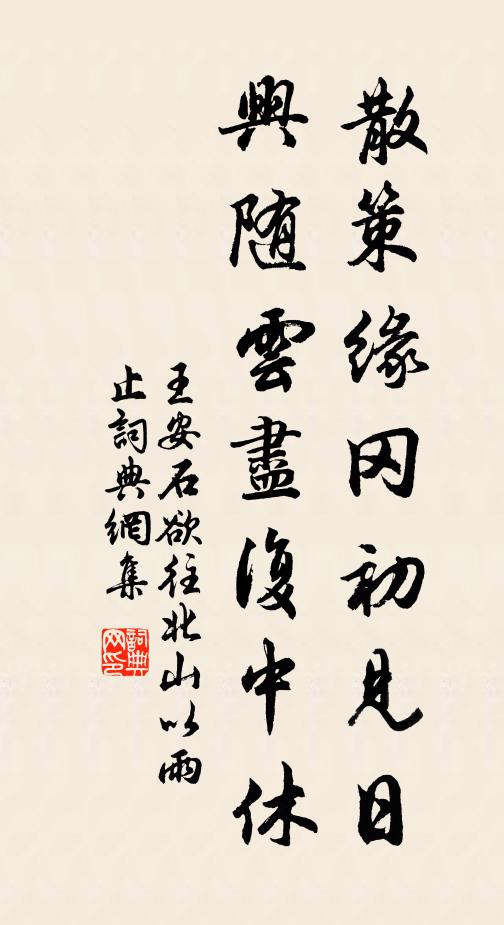 散策緣冈初見日
興随雲盡復中休
王安石欲往北山以雨
止詞典網集
詞典
网印